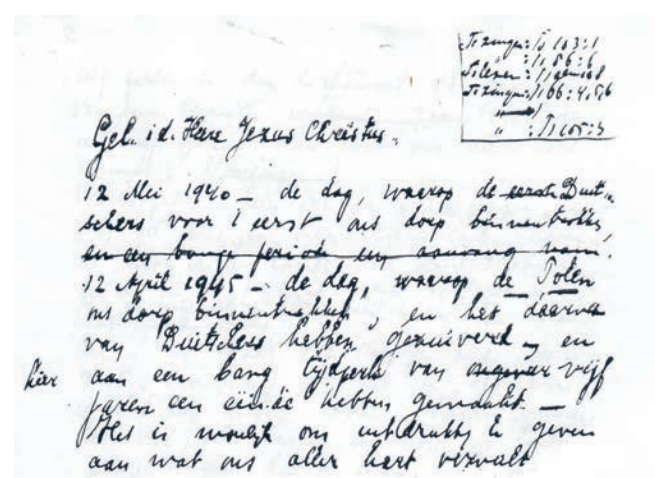 Te zingen: Ps 103:1
" : Ps 56:6
Te lezen: Ps
Te zingen: Ps 66:4,5,6
" : Ps 105:3
Gel. i.d. Heere Jezus Christus.
12 Mei 1940 – de dag, waarop de eerste Duit-
schers voor 't eerst ons dorp binnentrokken
en een bange periode een aanvang nam.
12 April 1945 – de dag, waarop de Polen
ons dorp binnentrokken, en het daarvan
van Duitschers hebben gezuiverd – en
hier aan een bang tijdperk van ongeveer vijf
jaren een einde hebben gemaakt. –
Het is moeilijk om uitdrukking te geven
aan wat ons aller hart vervult